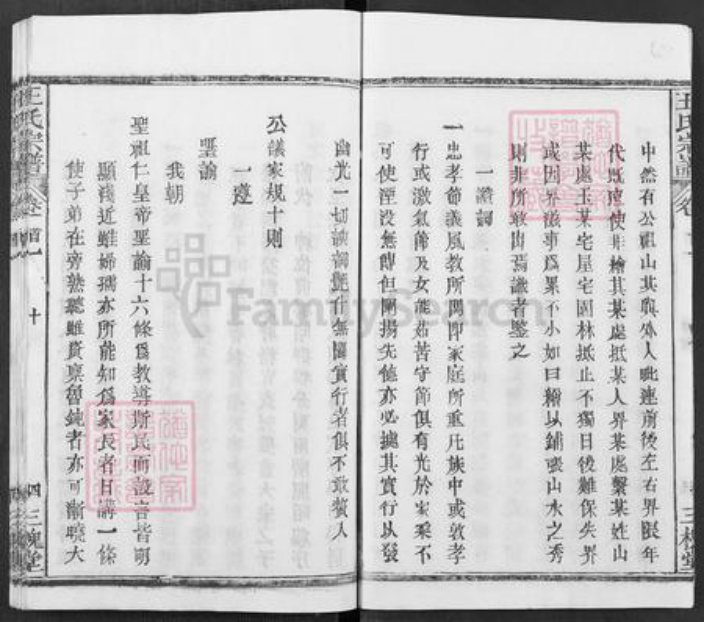 王氏宗譜
中然有公祖山其與外人毗連前後左右界限年
代既遠使非繪其某處抵某人界某處繫某姓山
某處王某宅屋宅園林抵止不獨日後難保失界
或因界滋事爲累不小如曰藉以鋪張山水之秀
則非所敢出焉識者鑒之
一讚詞
一忠孝節義風教所關即家庭所重凡族中或敦孝
行或激氣節及女能茹苦守節俱有光於家乘不
可使湮沒無傳但闡揚先德亦必據其實行以發
幽光一切諛詞艷什無關實行者俱不敢贅入
三槐堂
公議家規十則
一遵
聖諭
我朝
聖祖仁皇帝聖諭十六條爲教導斯民而設言皆明
顯淺近雖婦孺亦所能知爲家長者日講一條
使子弟在旁熟聽雖資稟魯鈍者亦可漸曉大
王氏宗譜 卷首 十 四 三槐堂
FamilySearch